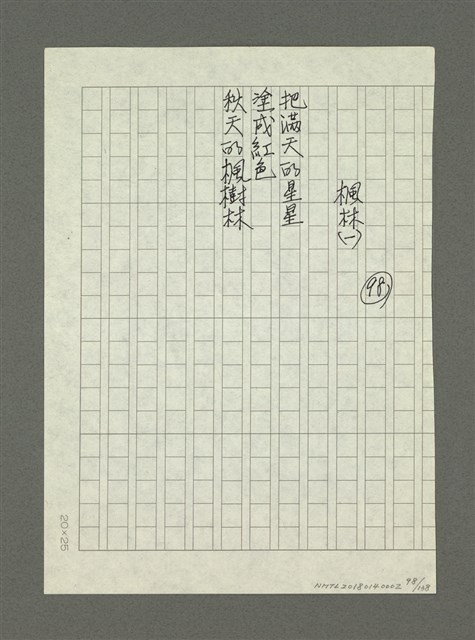 98
楓林(一)
把滿天的星星
塗成紅色
秋天的楓樹林
20×25
NMTL20180140002 98/138